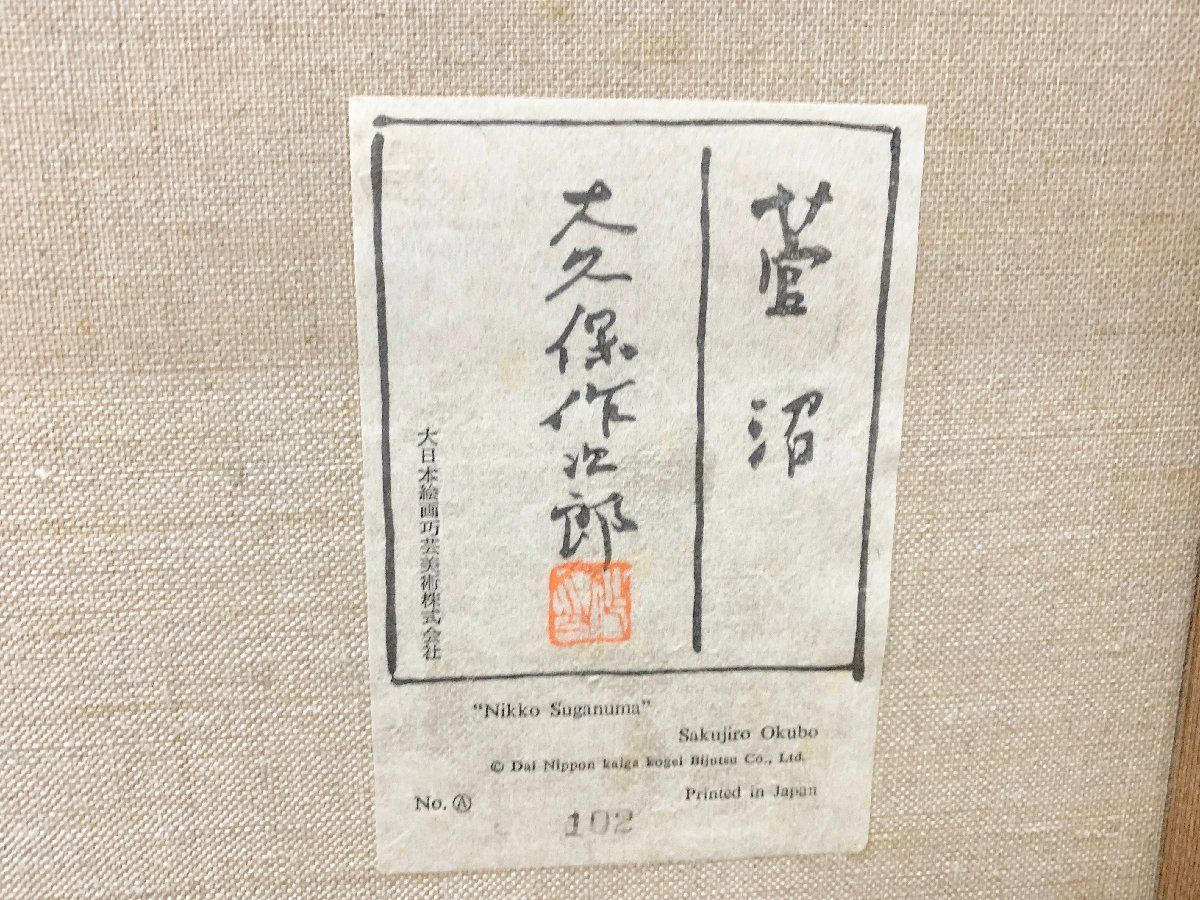 菅沼
大久保作次郎
大日本絵画巧芸美術株式会社
"Nikko Suganuma"
Sakujiro Okubo
© Dai Nippon kaiga kogei Bijutsu Co., Ltd.
Printed in Japan
No. Ⓐ
102